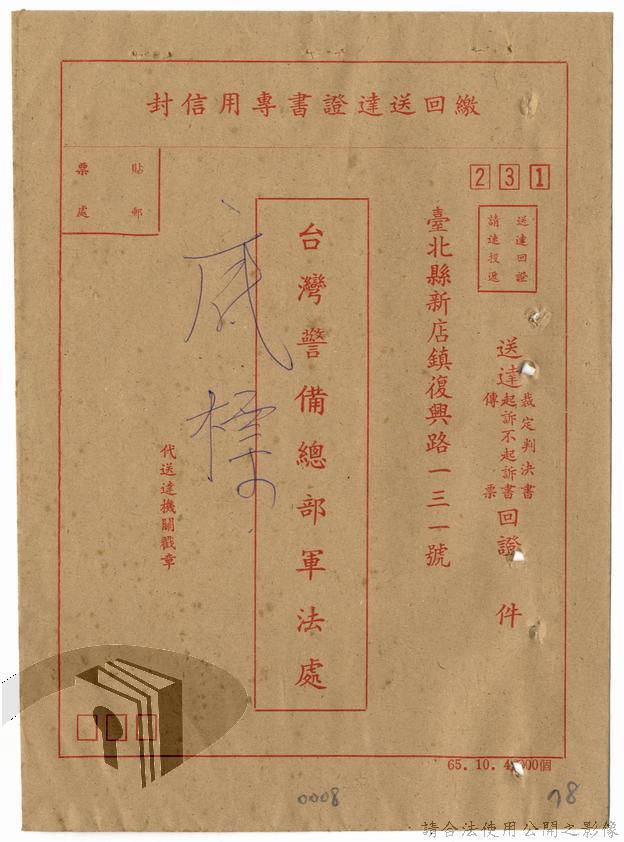 繳回送達證書專用信封
貼郵
票處
231
送達回證
請速投遞
送達
裁定判決書
起訴不起訴書
傳票
回證 件
臺北縣新店鎮復興路一三一號
台灣警備總部軍法處
底標
代送達機關戳章
65.10.4,000個
0008
78
請合法使用公開之影像